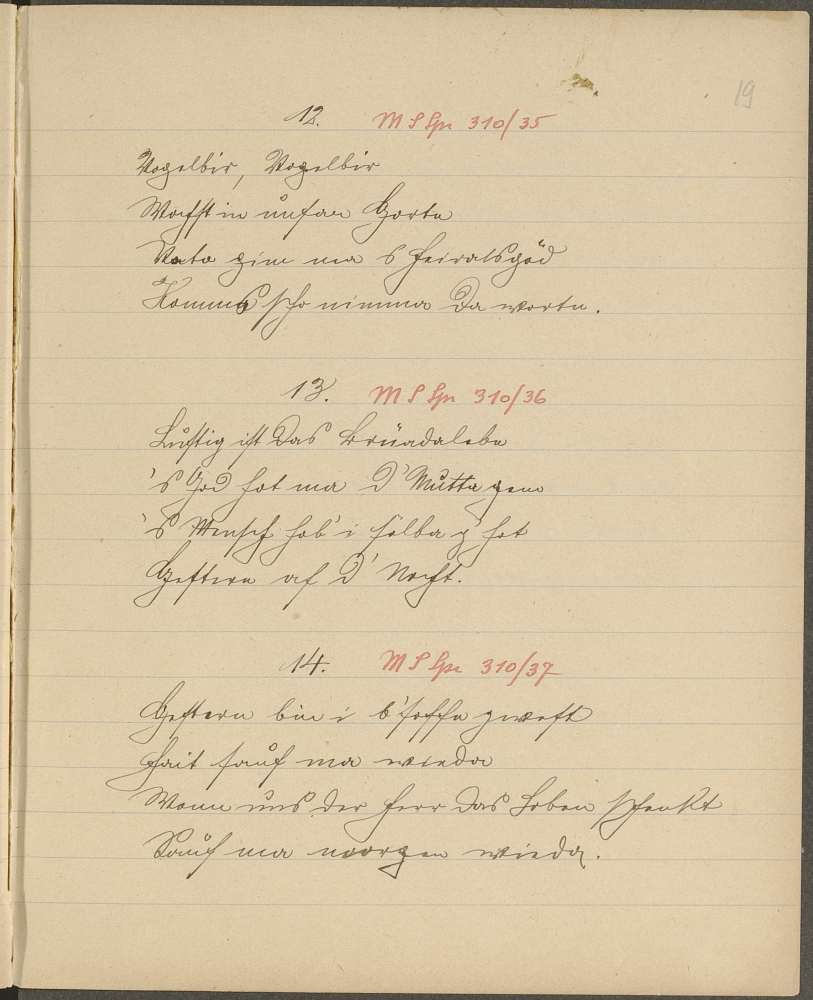 19
12. MS Spr 310/35
Vogelbir, Vogelbir
Wochst in unsan Gortn
Vata gim ma s Heiratsgöd
Konns scho nimma da wortn.
13. MS Spr 310/36
Lustig ist das Brüadalebn
's God hot ma d' Mutta gem
's Mensch hob i sölba g'hot
Gestern af d' Nocht.
14. MS Spr 310/37
Gestern bin i b'soffn gwest
Hait sauf ma wieda
Wonn uns der Herr das Leben schenkt
Sauf ma morgen wieda.